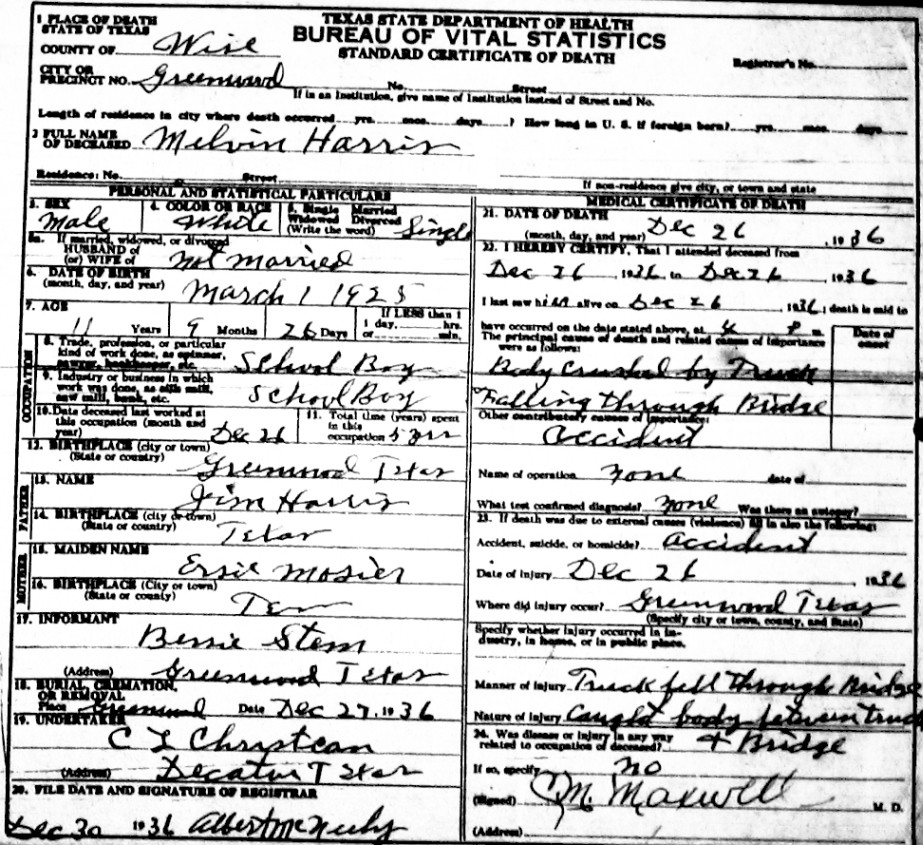 TEXAS STATE DEPARTMENT OF HEALTH
BUREAU OF VITAL STATISTICS
STANDARD CERTIFICATE OF DEATH
1 PLACE OF DEATH
STATE OF TEXAS
COUNTY OF Wise
CITY OR
PRECINCT NO. Greenwood No. Street
If in an Institution, give name of Institution instead of Street and No.
Registrar's No.
Length of residence in city where death occurred yrs. mos. days. ? How long in U. S. if foreign born? yrs. mos. days
2 FULL NAME
OF DECEASED Melvin Harris
Residence: No. Street
If non-residence give city, or town and state
PERSONAL AND STATISTICAL PARTICULARS
3. SEX Male
4. COLOR OR RACE White
5. Single Married
Widowed Divorced
(Write the word) Single
5a. If married, widowed, or divorced
HUSBAND of
(or) WIFE of Not Married
6. DATE OF BIRTH
(month, day, and year) March 1 1925
7. AGE
11 Years 9 Months 26 Days
If LESS than 1
1 day, hrs.
or min.
OCCUPATION
8. Trade, profession, or particular
kind of work done, as spinner,
sawyer, bookkeeper, etc. School Boy
9. Industry or business in which
work was done, as silk mill,
saw mill, bank, etc. School Boy
10. Date deceased last worked at
this occupation (month and
year) Dec 26
11. Total time (years) spent
in this
occupation 5 yrs
12. BIRTHPLACE (city or town)
(State or country) Greenwood Texas
FATHER
13. NAME Jim Harris
14. BIRTHPLACE (city or town)
(State or country) Texas
MOTHER
15. MAIDEN NAME Ersie Mosier
16. BIRTHPLACE (City or town)
(State or county)
17. INFORMANT
Stem
(Address) Greenwood Texas
18. BURIAL, CREMATION,
OR REMOVAL
Place Greenwood Date Dec 27, 1936
19. UNDERTAKER
C L Christian
(Address) Decatur Texas
20. FILE DATE AND SIGNATURE OF REGISTRAR
Dec 30 1936 Albert McNeely
MEDICAL CERTIFICATE OF DEATH
21. DATE OF DEATH
(month, day, and year) Dec 26, 1936
22. I HEREBY CERTIFY, That I attended deceased from
Dec 26, 1936, to Dec 26, 1936
I last saw him alive on Dec 26, 1936; death is said to
have occurred on the date stated above, at 4 P m.
The principal cause of death and related causes of importance
were as follows:
Date of
onset
Body Crushed by Truck
Falling through Bridge
Other contributory causes of importance:
accident
Name of operation None date of
What test confirmed diagnosis? None Was there an autopsy?
23. If death was due to external causes (violence) fill in also the following:
Accident, suicide, or homicide? accident
Date of injury Dec 26, 1936
Where did injury occur? Greenwood Texas
(Specify city or town, county, and State)
Specify whether injury occurred in in-
dustry, in home, or in public place.
Manner of injury Truck fell through Bridge
Nature of injury Caught body between truck
& Bridge
24. Was disease or injury in any way
related to occupation of deceased?
If so, specify no
(Signed) M. Maxwell M. D.
(Address)